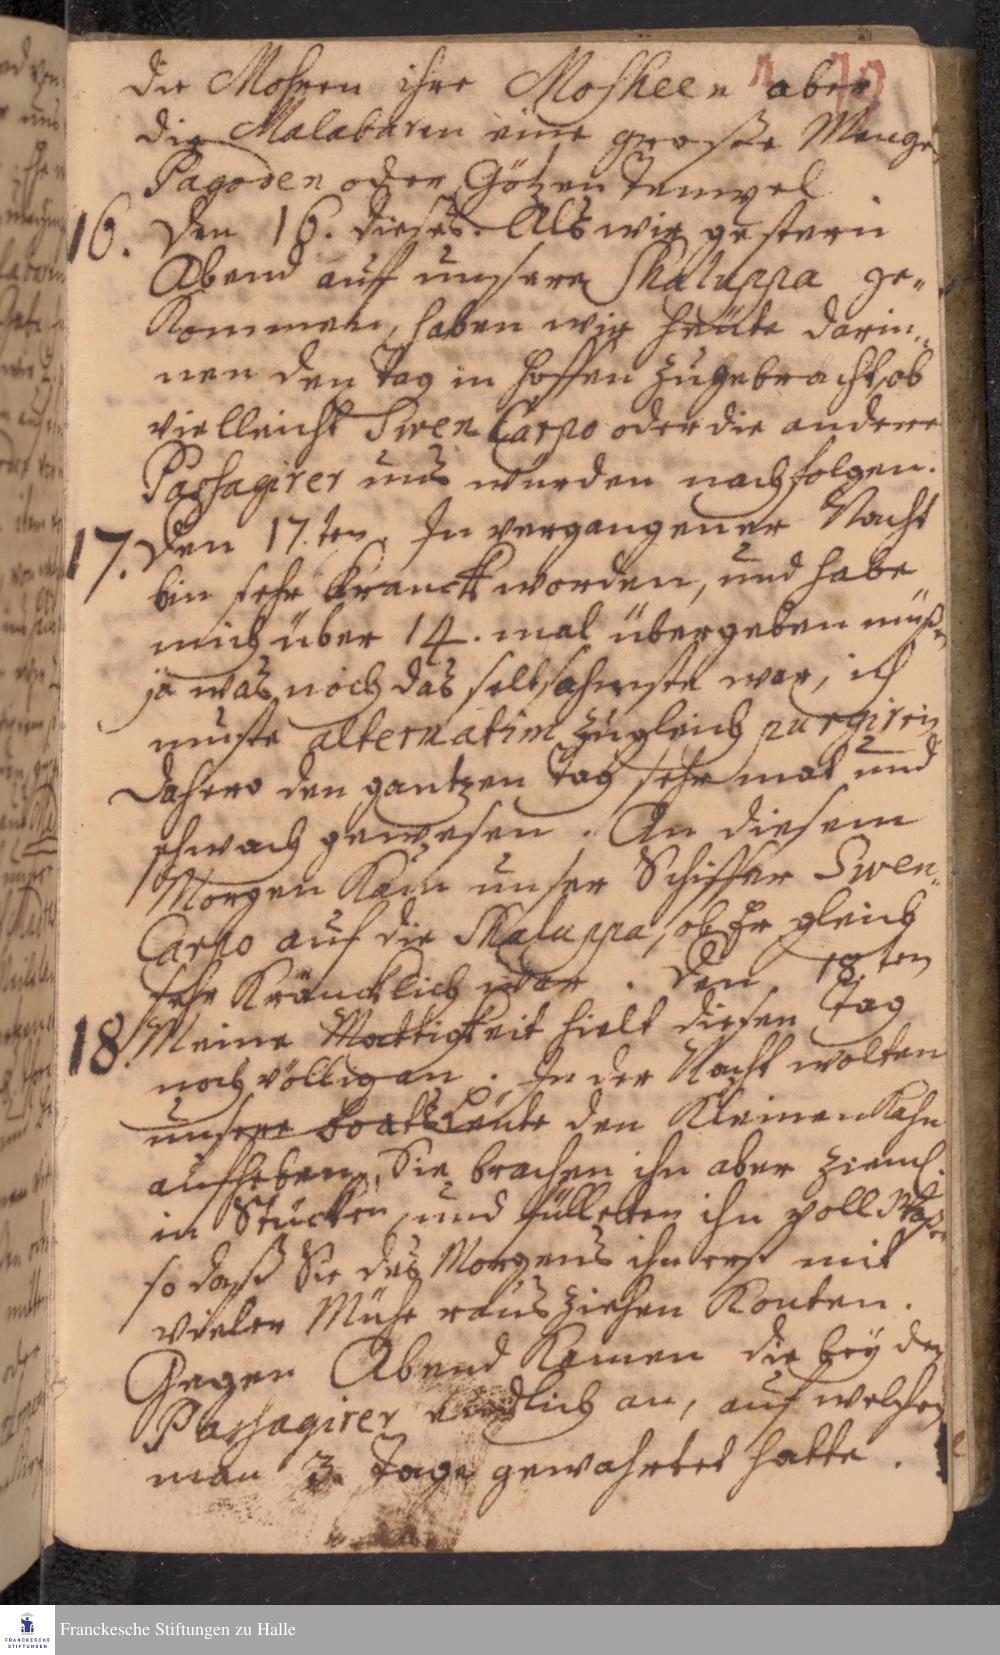 die Mohren ihre Mosheen aber
die Malabaren eine grosse Menge
Pagoden oder Götzen Tempel
16. Den 16. dieses. Als wir gestern
Abend auf unsere Shaluppa ge„
kommen, haben wir heute darin„
nen den Tag in hoffen zugebracht, ob
vielleicht Swen Carpo oder die andere
Passagirer uns würden nachfolgen.
17. Den 17.ten. In vergangener Nacht
bin sehr kranck worden, und habe
mich über 14. mal übergeben müßen
ja was noch das seltsahmste war, ich
muste alternatim zugleich purgiren
dahero den gantzen Tag sehr mat und
schwach gewesen. An diesem
Morgen kam unser Schiffer Swen„
Carpo auf die Shaluppa, ob Er gleich
sehr kräncklich war. Den 18.ten
18. Meine Mattigkeit hielt diesen Tag
noch völlig an. In der Nacht wolten
unsere boats Leute den kleinen Kahn
aufheben, Sie brachen ihn aber zieml.
in Stücken, und fülleten ihn voll Waßer
so daß Sie des Morgens ihn erst mit
vieler Mühe raus ziehen konten.
Gegen Abend kamen die beyden
Passagirer endlich an, auf welche
man 3. Tage gewahrtet hatte.
Franckesche Stiftungen zu Halle
FRANCKESCHE
STIFTUNGEN